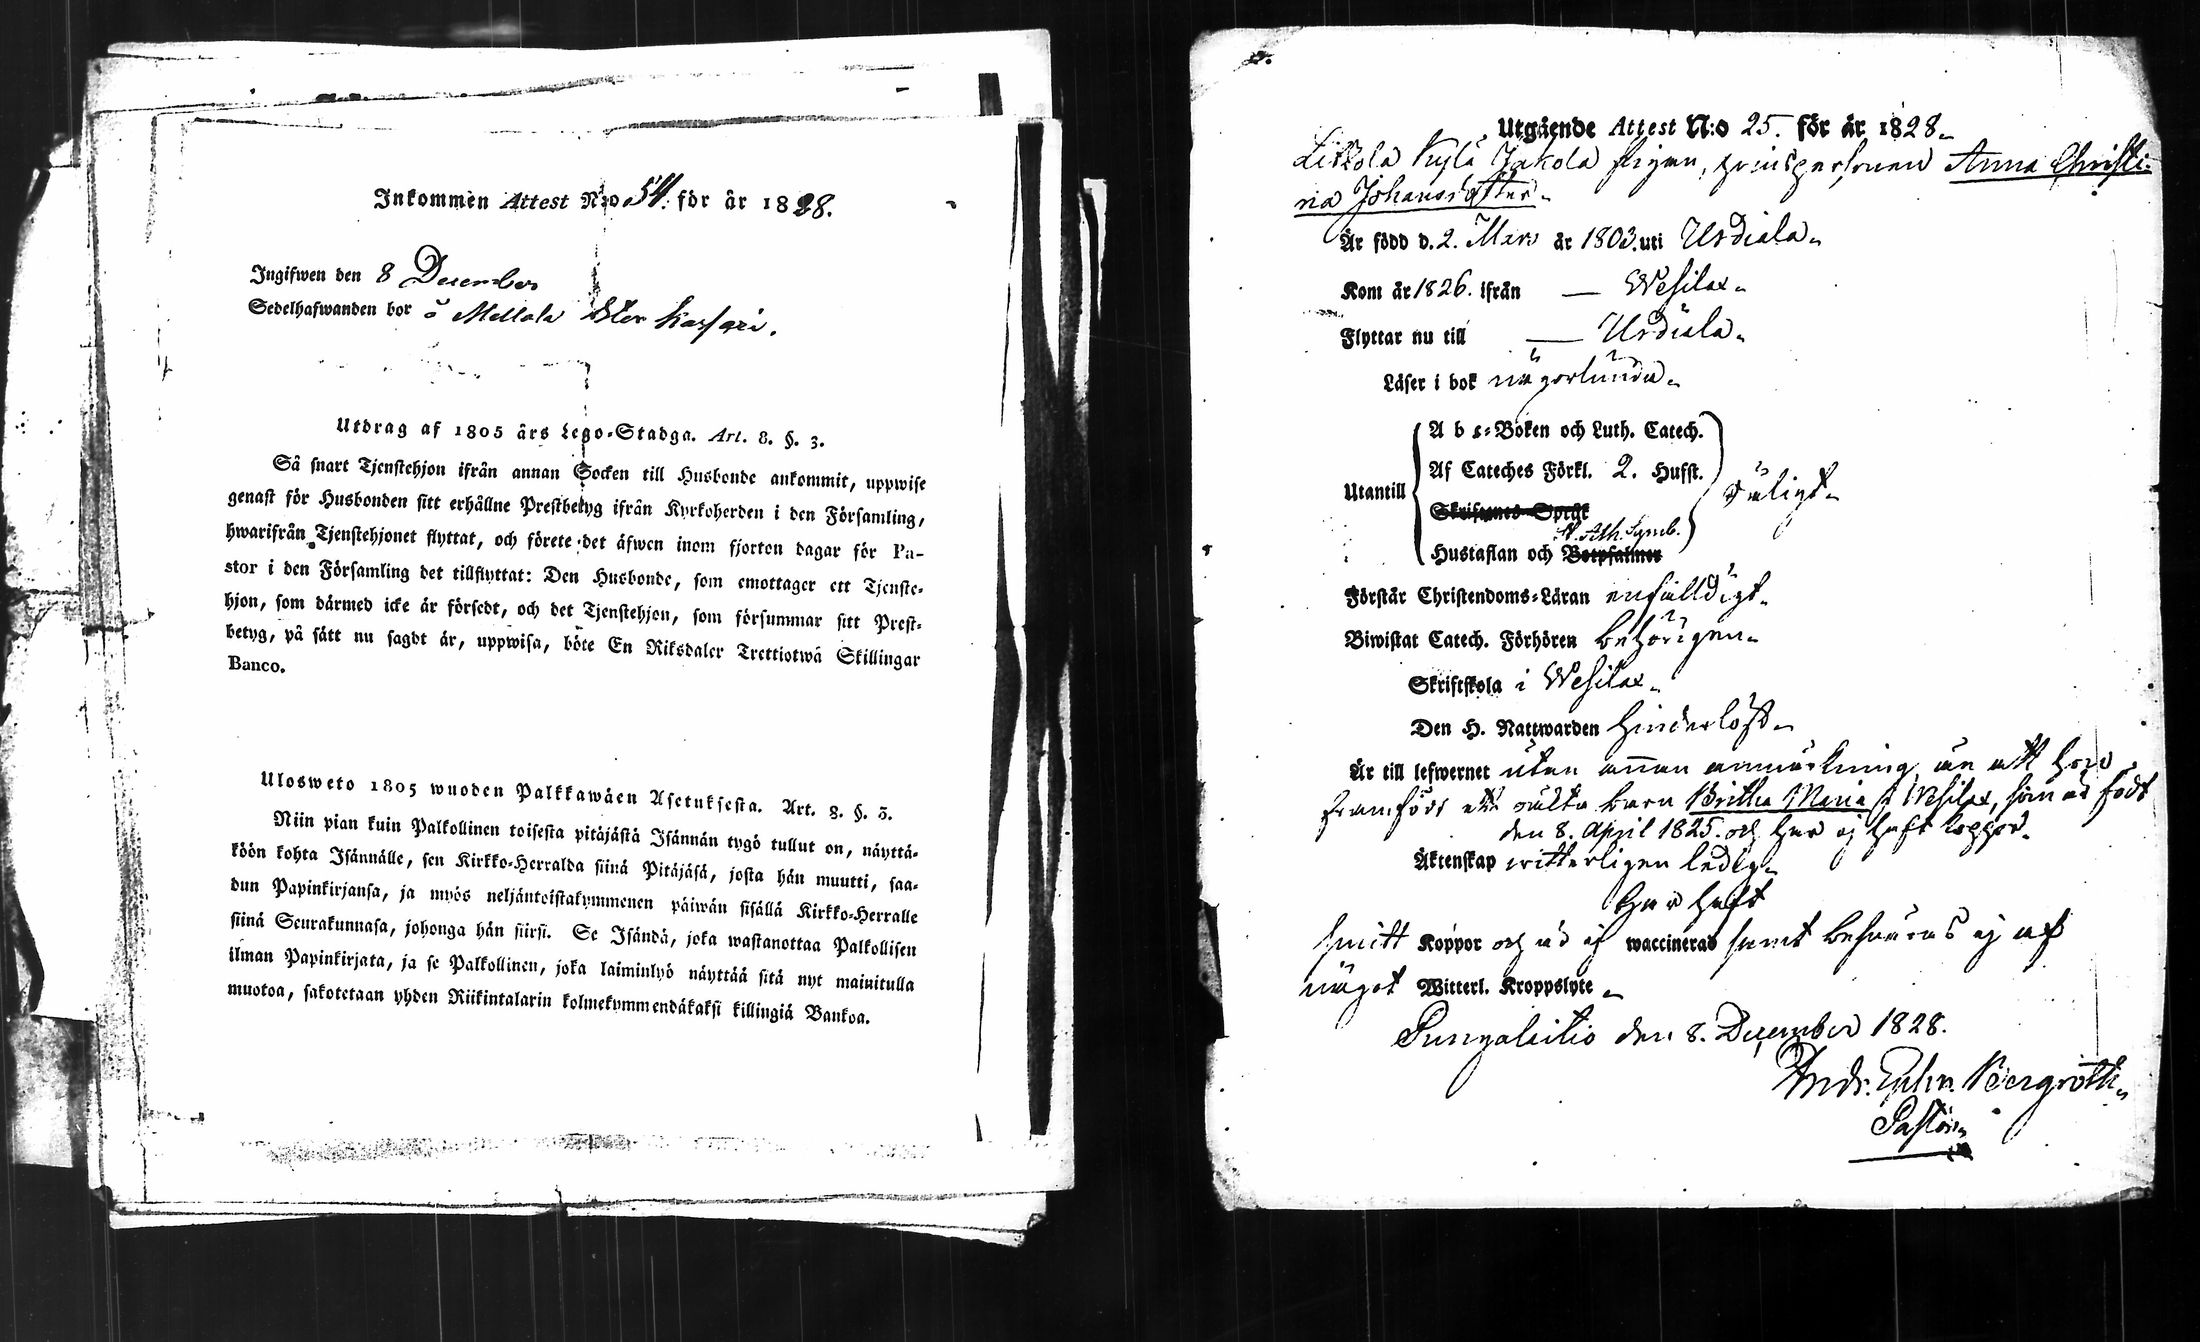 Inkommen Attest N:o 54. för år 1828.
Ingifwen den 8 December
Sedelhafwanden bor å Mellola
Utdrag af 1805 års Lego-Stadga. Art. 8. §. 3.
Så snart Tjenstehjon ifrån annan Socken till Husbonde ankommit, uppwise
genast för Husbonden sitt erhållne Prestbetyg ifrån Kyrkoherden i den Församling,
hwarifrån Tjenstehjonet flyttat, och förete det äfwen inom fjorton dagar för Pa-
stor i den Församling det tillflyttat: Den Husbonde, som emottager ett Tjenste-
hjon, som därmed icke är försedt, och det Tjenstehjon, som försummar sitt Prest-
betyg, på sätt nu sagdt är, uppwisa, böte En Riksdaler Trettiotwå Skillingar
Banco.
Ulosweto 1805 wuoden Palkkawäen Asetuksesta. Art. 8. §. 3.
Niin pian kuin Palkollinen toisesta pitäjästä Isännän tygö tullut on, näyttä-
köön kohta Isännälle, sen Kirkko-Herralda siinä Pitäjäsä, josta hän muutti, saa-
dun Papinkirjansa, ja myös neljäntoistakymmenen päiwän sisällä Kirkko-Herralle
siinä Seurakunnasa, johonga hän siirsi. Se Isändä, joka wastanottaa Palkollisen
ilman Papinkirjata, ja se Palkollinen, joka laiminlyö näyttää sitä nyt mainitulla
muotoa, sakotetaan yhden Riikintalarin kolmekymmendäkaksi killingiä Bankoa.
Utgående Attest N:o 25. för år 1828.
Kylä Jakola pigan, qvinspersonen Anna Christi-
na Johansdotter.
Är född d. 2. Mars år 1803. uti Urdiala.
Kom år 1826. ifrån — Wesilax.
Flyttar nu till — Urdiala.
Läser i bok någorlunda.
Utantill
A b c-Boken och Luth. Catech.
Af Cateches Förkl. 2. Hufst.
Skriftenes Språk
S. Ath. Symb.
Hustaflan och Botpsalmer
Förstår Christendoms-Läran enfalldigt.
Biwistat Catech. Förhören behörigen.
Skriftskola i Wesilax.
Den H. Nattwarden hinderlöst.
Är till lefwernet utan annan anmärkning, än att hon
framfödt ett oäkta barn Britha Maria i Wesilax, som är född
den 8. April 1825. och har ej haft koppor.
Äktenskap witterligen ledig.
har haft
Koppor och är ej waccinerad samt besväras ej af
något Witterl. Kroppslyte.
Pungalaitio den 8. December 1828.
Andr. Bergroth.
Pastor.